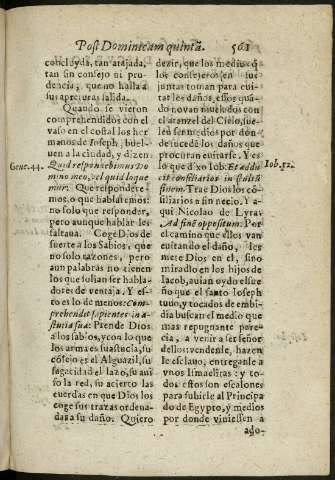 Post Dominicam quintã. 561
concluyda, tan atajada,
tan sin consejo ni pru-
dencia, que no halla a
sus apreturas salida.
Quando se vieron
comprehendidos con el
vaso en el costal los her-
manos de Ioseph, buel-
uen a la ciudad, y dizen:
Gene. 44.
Quid respondebimus Do-
mino meo, vel quid loque
mur? Que respondere-
mos, o que hablaremos:
no solo que responder,
pero aunque hablar les
faltaua. Coge Dios de
suerte a los Sabios, que
no solo razones, pero
aun palabras no tienen
los que solian ser habla-
dores de ventaja. Y es-
to es lo de menos: Com-
prehendit sapientes in as-
tutia sua: Prende Dios
a los sabios, y con lo que
los arma es su astucia, su
cõsejo es el Alguazil, su
sagacidad el lazo, su aui
so la red, su acierto las
cuerdas en que Dios los
coge sus trazas ordena-
das a su daño. Quiero
dezir, que los medios q̃
los consejeros en sus
juntas toman para eui-
tar les daños, essos quã-
do no van niuelados con
el aranzel del Cielo, sue-
len ser medios por don-
de sucede los daños que
procuran euitarse. Y es-
so es lo que dixo Iob. Et addu
Iob. 12.
cit consiliarios in stultũ
finem. Trae Dios los cõ-
siliarios a fin necio. Y a-
qui Nicolao de Lyra:
Ad fine oppositum. Por
el camino que ellos van
euitando el daño, les
mete Dios en el, sino
miradlo en los hijos de
Iacob, auian oydo el sue
ño que el santo Ioseph
tuuo, y tocados de embi-
dia buscan el medio que
mas repugnante pare-
cia, a venir a ser señor
dellos: vendenle, hazen
le esclauo, entreganle a
vnos Ismaelitas: y to-
dos estos son escalones
para subirle al Principa
do de Egypto, y medios
por donde viniessen a
ado-